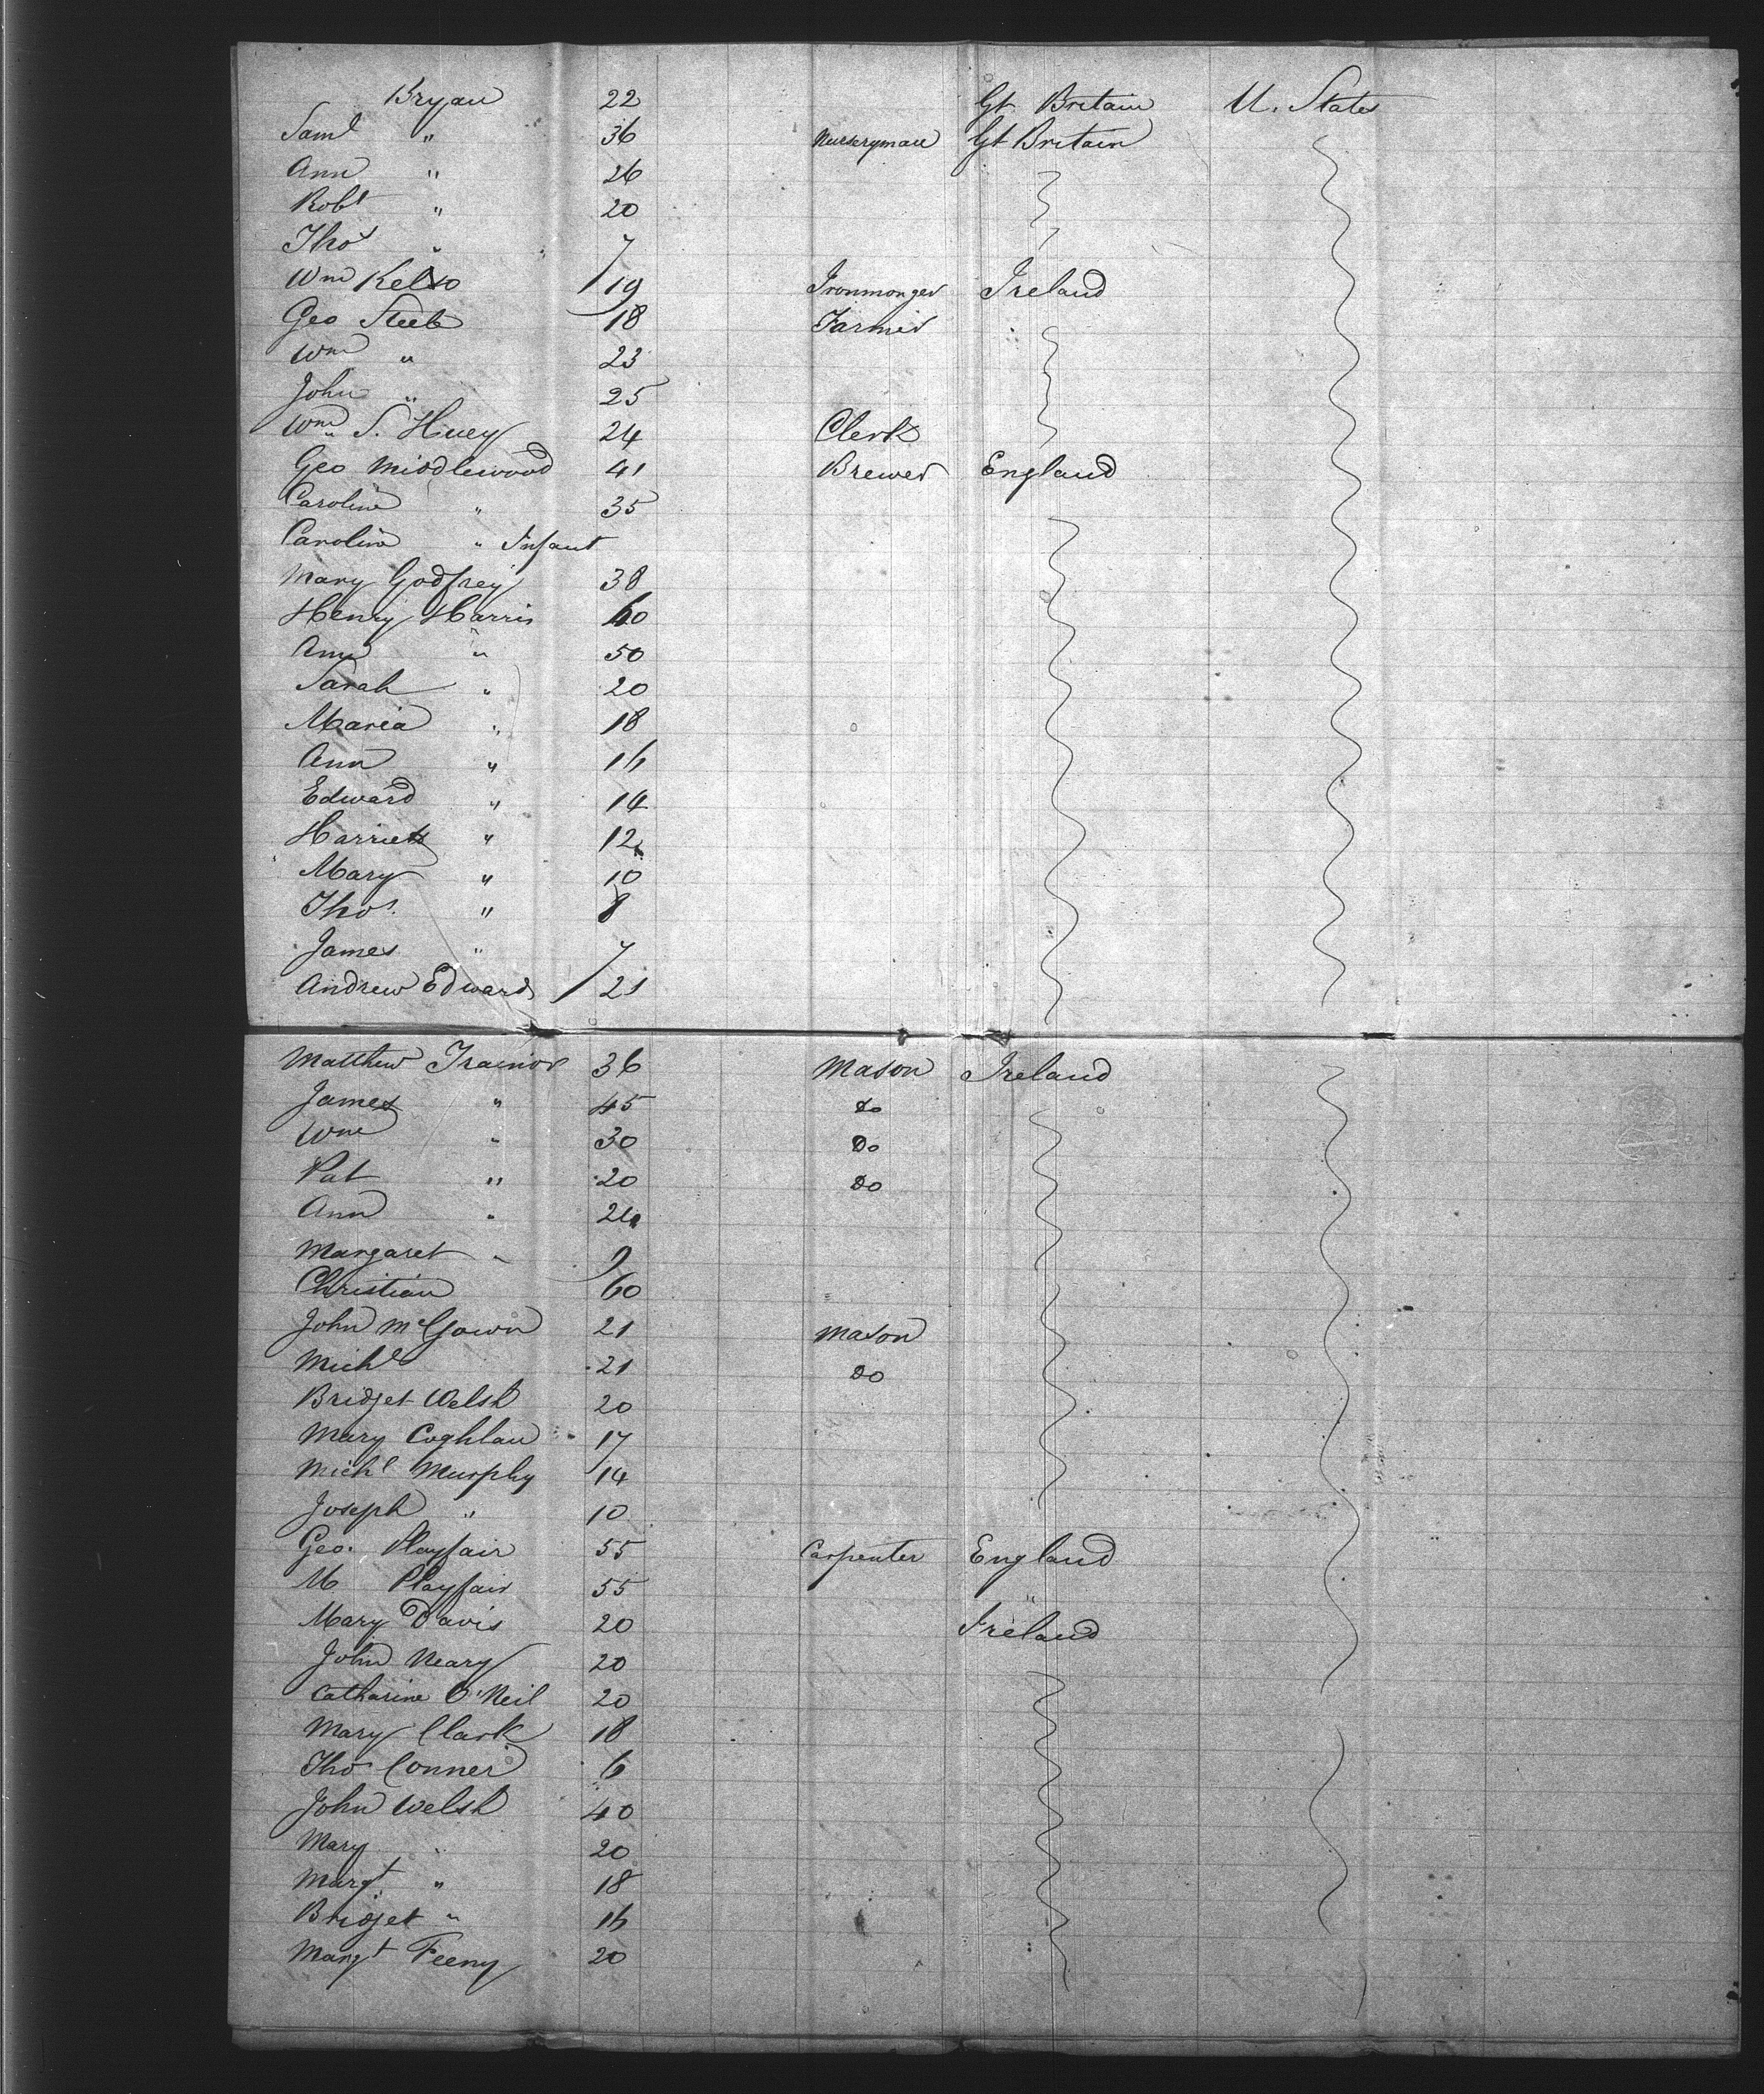 Bryan 22 Gt Britain U. States
Saml " 36 Nurseryman Gt Britain
Ann " 26
Robt " 20
Thos " 7
Wm Kelso 19 Ironmonger Ireland
Geo Steele 18 Farmer
Wm " 23
John " 25
Wm S. Huey 24 Clerk
Geo Middlewood 41 Brewer England
Caroline " 35
Caroline " Infant
Mary Godfrey 38
Henry Harris 60
Ann " 50
Sarah " 20
Maria " 18
Ann " 16
Edward " 14
Harriet " 12
Mary " 10
Thos. " 8
James " 7
Andrew Edwards 21
Matthew Trainor 36 Mason Ireland
James " 45 Do
Wm " 30 Do
Pat " 20 Do
Ann "
Margaret " 9
Christian 60
John McGown 21 Mason
Michl 21 Do
Bridget Welsh 20
Mary Coghlan 17
Michl Murphy 14
Joseph " 10
Geo. Playfair 55 Carpenter England
M Playfair 55 "
Mary Davis 20 Ireland
John Neary 20
Catharine O'Neil 20
Mary Clark 18
Thos Conner 6
John Welsh 40
Mary " 20
Margt " 18
Bridget " 16
Margt Feeny 20